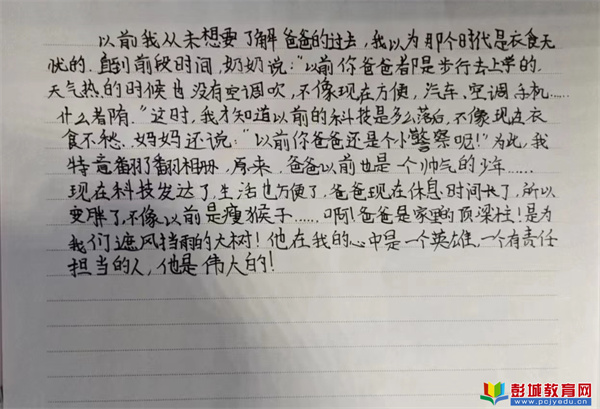 以前我从未想要了解爸爸的过去，我以为那个时代是衣食无
忧的．直到前段时间，奶奶说："以前你爸爸都是步行去上学的，
天气热的时候也没有空调吹，不像现在方便，汽车、空调、手机……
什么都有．"这时，我才知道以前的科技是多么落后，不像现在衣
食不愁．妈妈还说："以前你爸爸还是个小警察呢！"为此，我
特意翻了翻相册，原来，爸爸以前也是一个帅气的少年……
现在科技发达了，生活也方便了，爸爸现在休息时间长了，所以
变胖了，不像以前是瘦猴子……啊！爸爸是家里的顶梁柱！是为
我们遮风挡雨的大树！他在我的心中是一个英雄，一个有责任
担当的人，他是伟大的！
彭城教育网
www.pcjyedu.cn